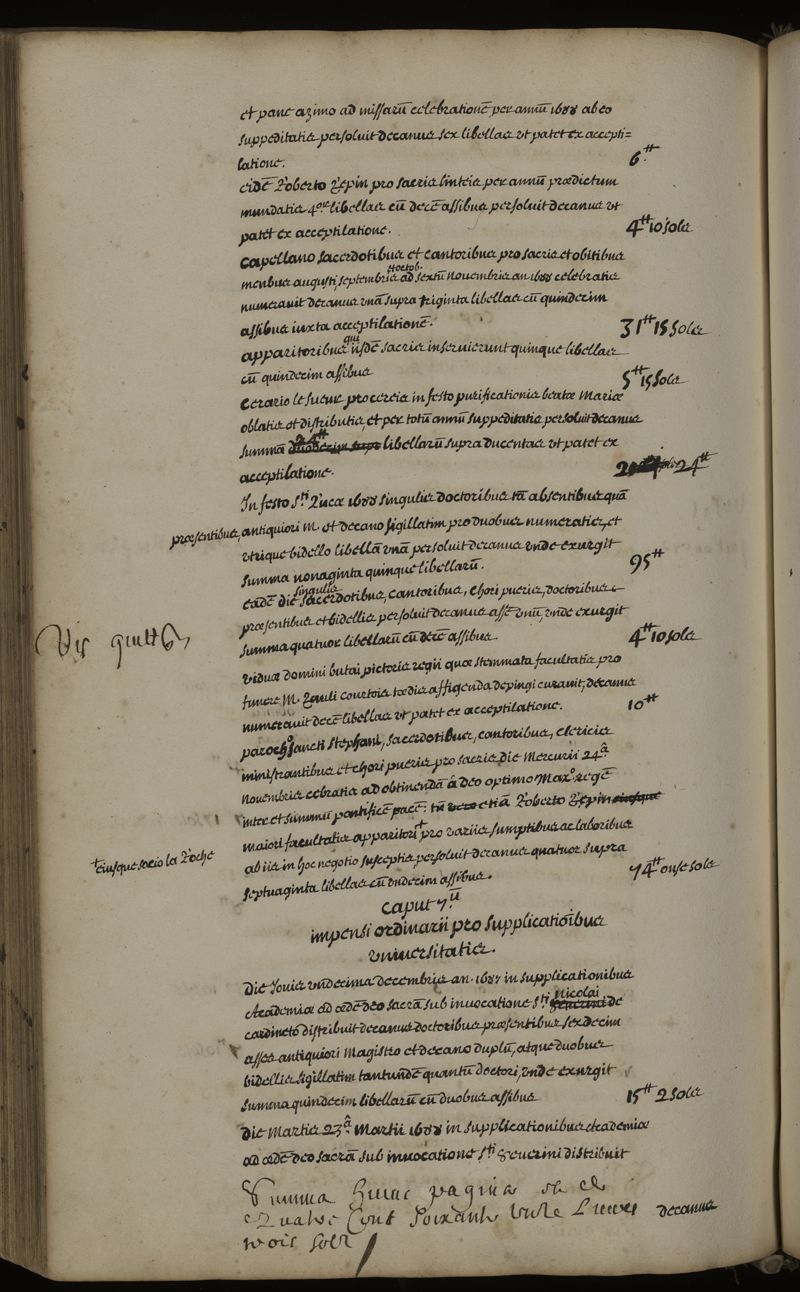 et pane azimo ad missarū celebrationē per annū 1688 ab eo
suppeditatis persoluit decanus sex libellas vt patet ex accepti=
latione. 6.tt
eidē Roberto Pepin pro sacris linteis per annū prædictum
mundatis 4or libellas cū decē assibus persoluit decanus vt
patet ex acceptilatione. 4tt 10 sols
capellano sacerdotibus et cantoribus pro sacris et obitibus
mensibus augusti, septembris, octob. ad sextū nouembris an. 1688 celebratis
numerauit decanus vnā supra triginta libellas cū quindecim
assibus iuxta acceptilationē. 31tt 15 sols
apparitoribus qui iisdē sacris inseruierunt quinque libellas
cū quindecim assibus 5tt 15 sols
cerario le sueur pro cereis in festo purificationis beatæ Mariæ
oblatis et distributis, et per totū annū suppeditatis persoluit decanus
summā 24tt libellarū supra ducentas vt patet ex
acceptilatione. 24tt
In festo sti Lucæ 1688 singulis doctoribus tā absentibus quā
præsentibus, antiquiori M. et decano sigillatim pro duobus numeratis, et
vtrique bidello libellā vnā persoluit decanus vnde exurgit
summa nonaginta quinque libellarū. 95tt
eadē die singulis sacerdotibus, cantoribus, chori pueris, doctoribus
præsentibus et bidellis persoluit decanus assē vnū, vnde exurgit
summa quatuor libellarū cū decē assibus 4tt 10 sols
viduæ domini butai pictoris regii quæ stemmata facultatis pro
funere M. Pauli courtois tædis affigenda depingi curauit, decanus
numerauit decē libellas vt patet ex acceptilatione. 10tt
parocho sancti stephani, sacerdotibus, cantoribus, clericis
ministrantibus et chori pueris pro sacris die Mercurii 24â
nouembris cebratis ad obtinendā â deo optimo Maxo. regē
inter et summū pontificē pacē: tū etiā Roberto Pepin
maiori facultatis apparitori + pro variis sumptibus ac laboribus
+ eiusque socio la Roche
ab iis in hoc negotio susceptis persoluit decanus quatuor supra
septuaginta libellas cū vndecim assibus. 74tt onse sols
caput 7ū
impensi ordinarii pro supplicatiōibus
vniuersitatis.
die Jouis vndecima decembris an. 1687 in supplicationibus
Academiæ ad ædē deo sacrā sub inuocatione sti Nicolai de
cardineto distribuit decanus doctoribus præsentibus sexdecim
asses antiquiori Magistro et decano duplū, atque duobus
bidellis sigillatim tantundē quantū doctori, vnde exurgit
summa quindecim libellarū cū duobus assibus 15tt 2 sols
die Martis 23â Martii 1688 in supplicationibus Academiæ
ad ædē deo sacrā sub inuocatione sti seuerini distribuit
decanus
Summa huius pagina
Quatre Cent Soixante Liures
trois solz